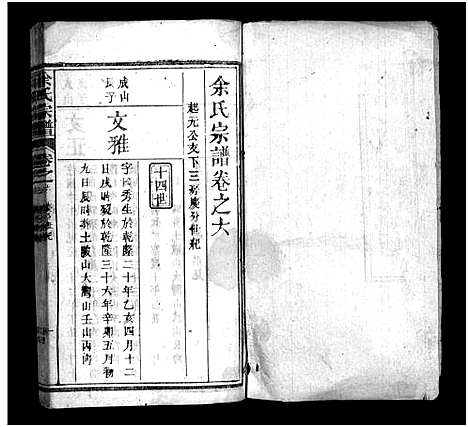 余氏宗譜卷之六
起元公支下三房慶分世紀
十四世
成山
長子
文雅
字秀生於乾隆二十年乙亥四月十二
日戌時歿於乾隆三十六年辛卯五月初
九日辰時葬土山大灣山壬山丙向
余氏宗譜
卷之